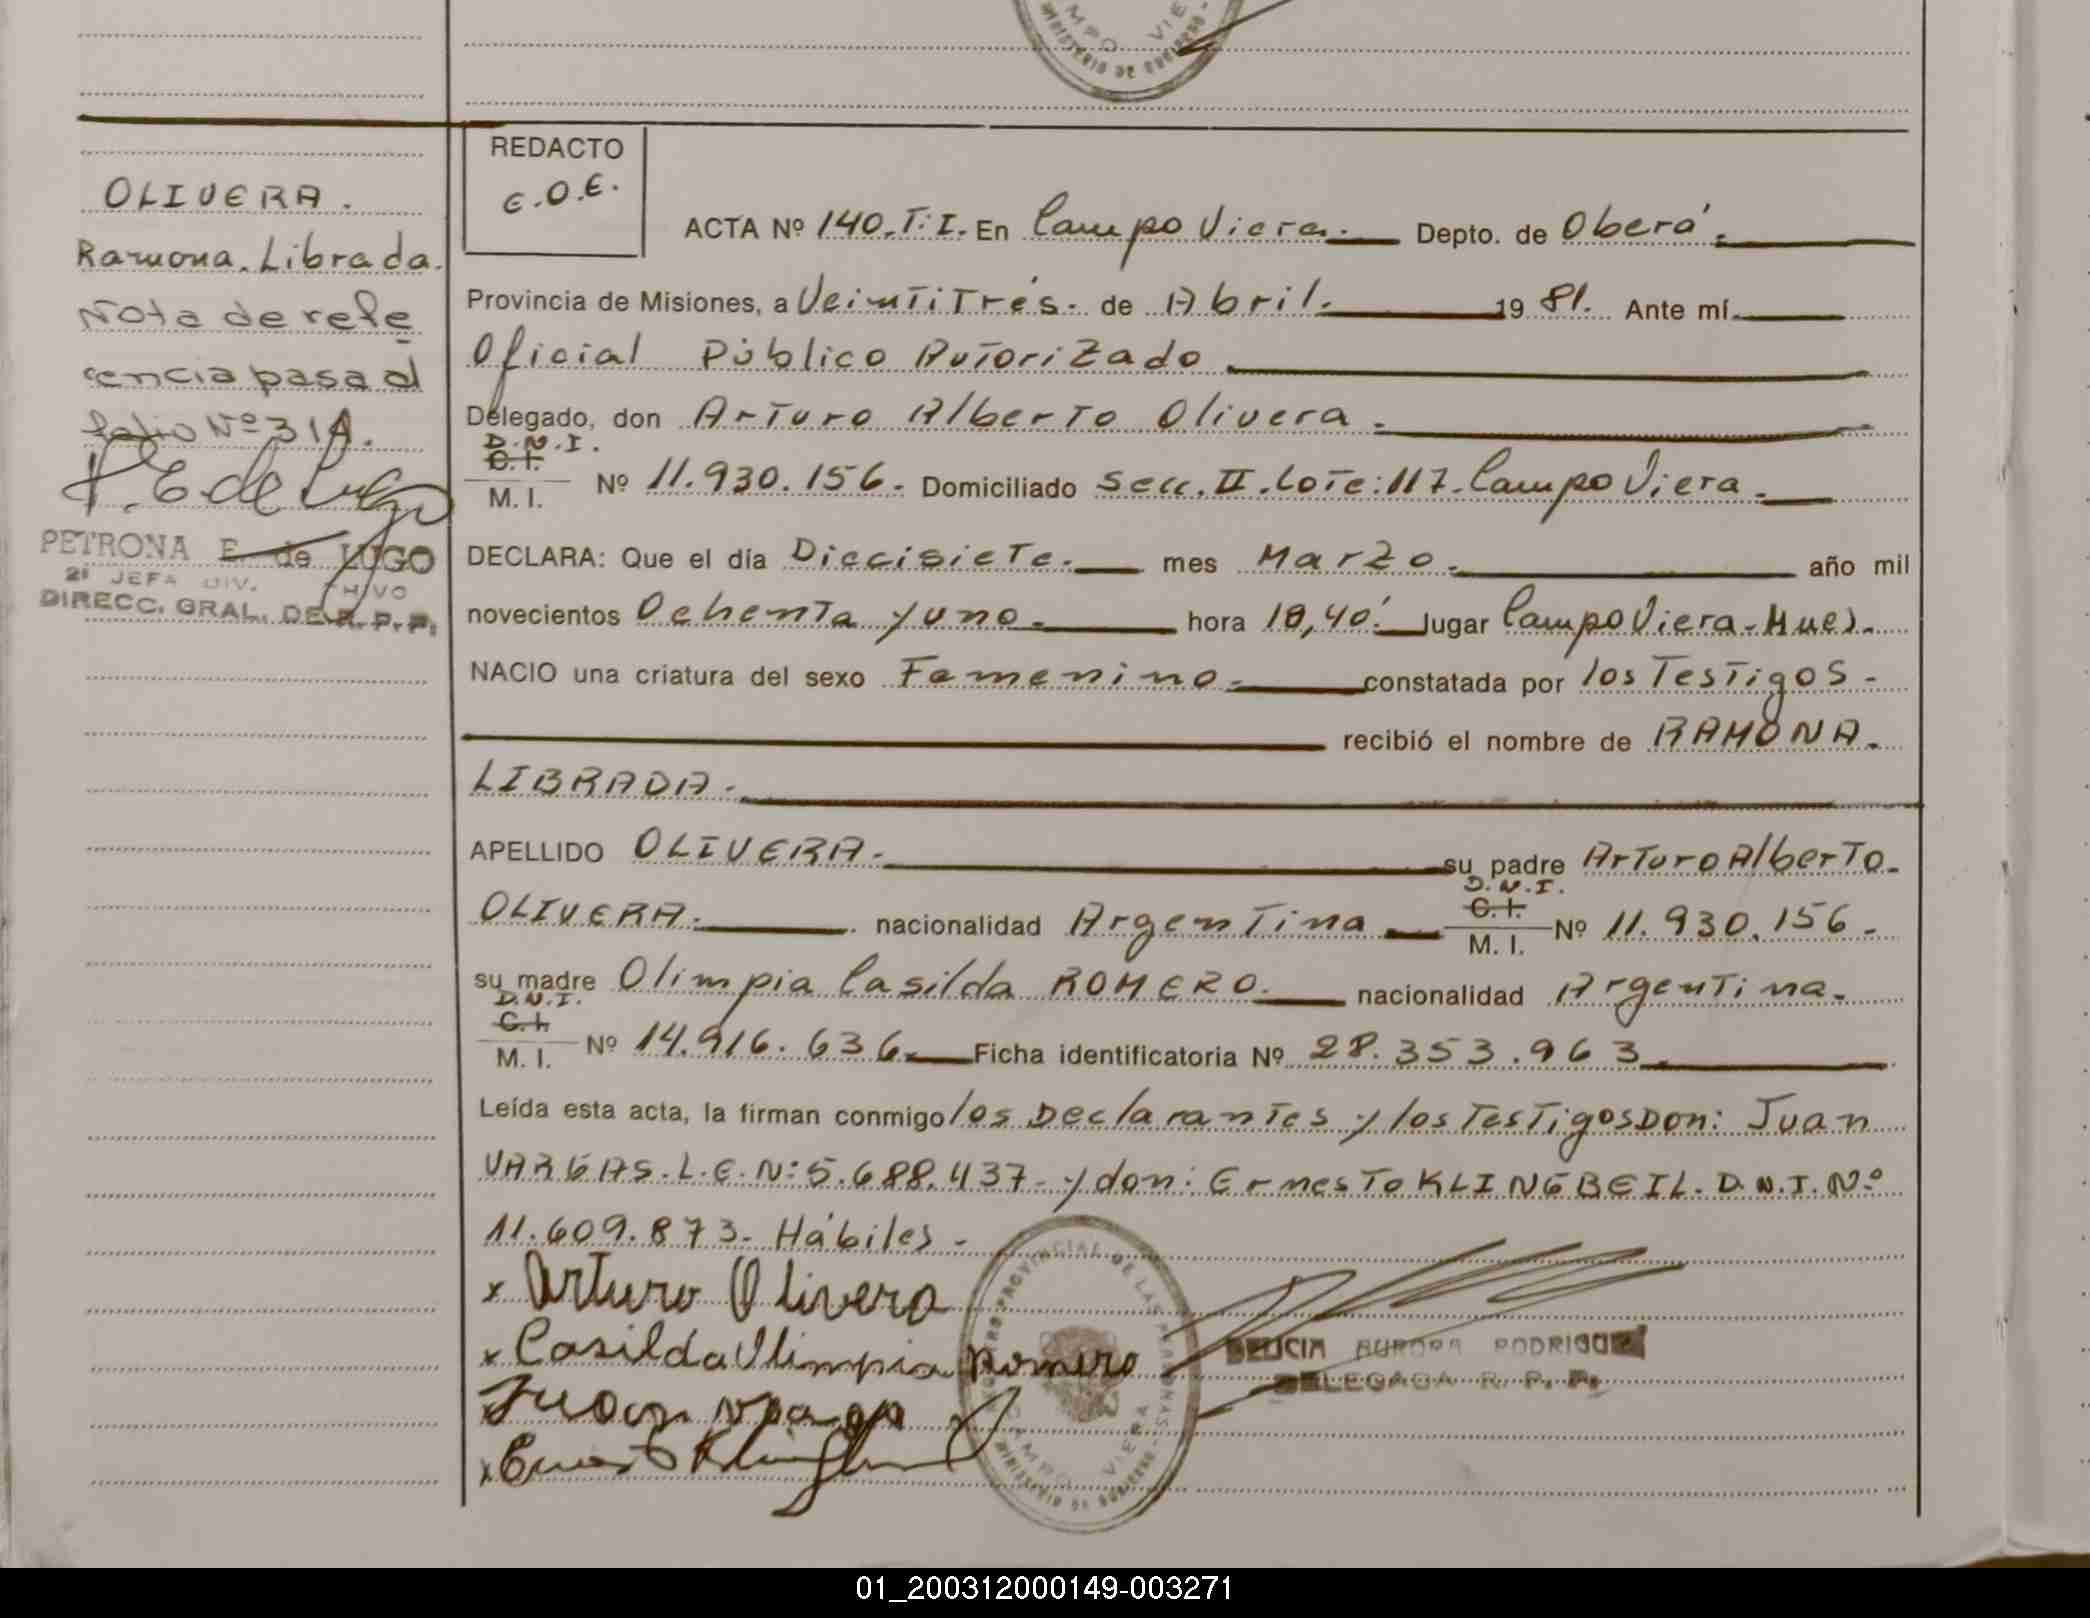 REDACTO
E.O.E.
OLIVERA.
Ramona. Librada.
Nota de refe
rencia pasa al
folio Nº 31A.
P. E. de Lugo
PETRONA E. de LUGO
2ª JEFA DIV. HIVO
DIRECC. GRAL. DE R. P. P.
ACTA Nº 140.T:I. En Campo Viera. Depto. de Oberá.
Provincia de Misiones, a VeintiTrés. de Abril. 19 81. Ante mí
Oficial Público AuTorizado
Delegado, don ArTuro AlberTo Olivera.
D.N.I.
C.I.
M. I. Nº 11.930.156. Domiciliado Secc. II. LoTe: 117. Campo Viera.
DECLARA: Que el día DiecisieTe. mes Marzo. año mil
novecientos OchenTa y uno. hora 18,40'. Lugar Campo Viera-Mnes.
NACIO una criatura del sexo Femenino. constatada por los TesTigos.
recibió el nombre de RAMONA.
LIBRADA.
APELLIDO OLIVERA. su padre ArTuro AlberTo.
OLIVERA. nacionalidad ArgenTina D.N.I. C.I. M. I. Nº 11.930.156.
su madre Olimpia Casilda ROMERO. nacionalidad ArgenTina.
D.N.I.
C.I.
M. I. Nº 14.916.636. Ficha identificatoria Nº 28.353.963.
Leída esta acta, la firman conmigo los DeclaranTes y los TesTigos Don: Juan
VARGAS. L.E.N: 5.688.437. y don: ErnesTo KLINGBEIL. D.N.I. Nº
11.609.873. Hábiles.
x Arturo Olivera
x Casilda Olimpia Romero
Juan
x Ernesto
REGISTRO PROVINCIAL DE LAS PERSONAS
MINISTERIO DE GOBIERNO
CAMPO VIERA
AURORA RODRIGUEZ
DELEGADA R. P. P.
MINISTERIO DE GOBIERNO
MPO VIE
01_200312000149-003271